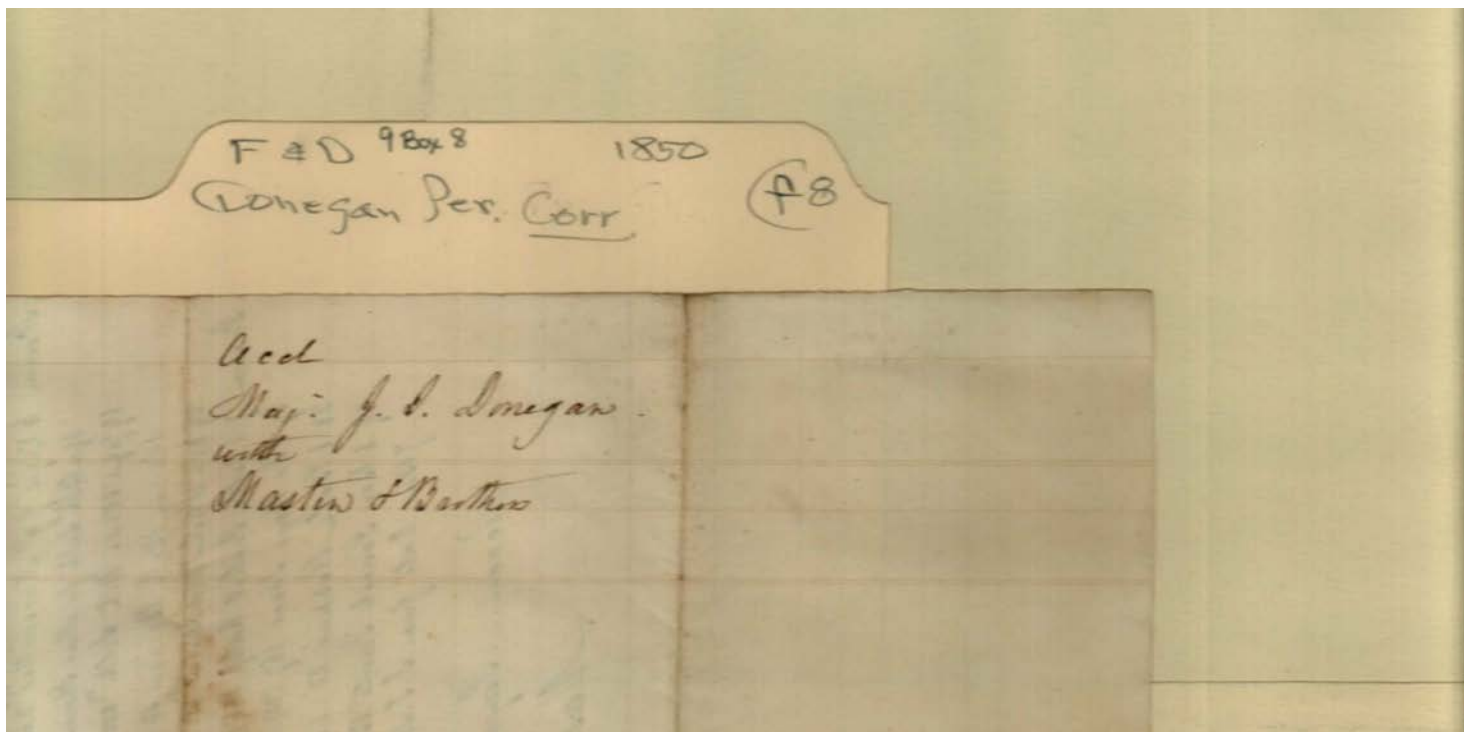 F & D 9 Box 8 1850
Donegan Per. Corr f8
Acct
Maj: J. I. Donegan.
with
Mastin & Brothers